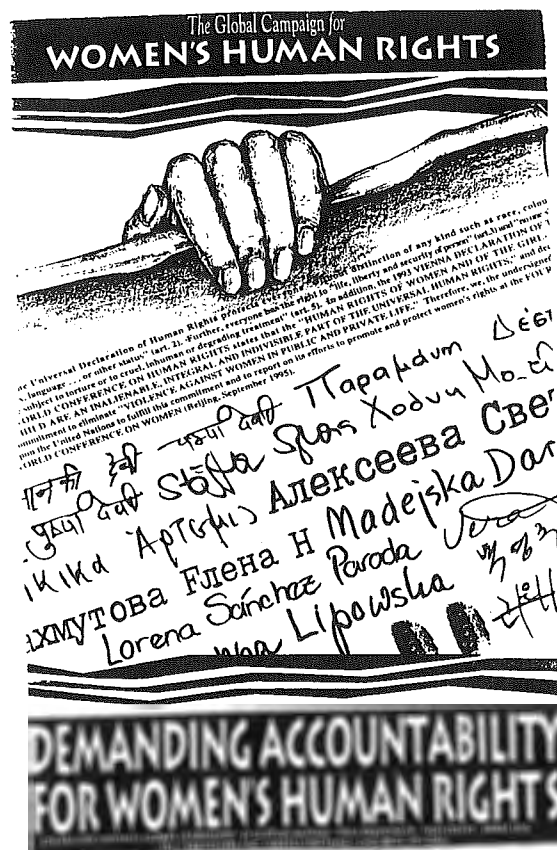 The Global Campaign for
WOMEN'S HUMAN RIGHTS
Universal Declaration of Human Rights protects everyone without distinction of any kind such as race, colou
language . . . or other status" (art. 2). Further, everyone has the right to "life, liberty and security of person" (art. 3) and
subject to torture or to cruel, inhuman or degrading treatment" (art. 5). In addition, the 1993 VIENNA DECLARATION OF
ORLD CONFERENCE ON HUMAN RIGHTS states that the "HUMAN RIGHTS OF WOMEN AND OF THE GIRL-
HILD ARE AN INALIENABLE, INTEGRAL AND INDIVISIBLE PART OF THE UNIVERSAL HUMAN RIGHTS," and de
mmitment to eliminate "VIOLENCE AGAINST WOMEN IN PUBLIC AND PRIVATE LIFE." Therefore, we, the undersigned
pon the United Nations to fulfill this commitment and to report on its efforts to promote and protect women's rights at the FOUR
ORLD CONFERENCE ON WOMEN (Beijing, September 1995).
देवी पुष्पा देवी
पुष्पा देवी Алексеева Све
Άρτεμις
ахмутова Елена Н Madejska Dar
Lorena Sánchez Paroda Vera
Lipowska
DEMANDING ACCOUNTABILITY
FOR WOMEN'S HUMAN RIGHTS